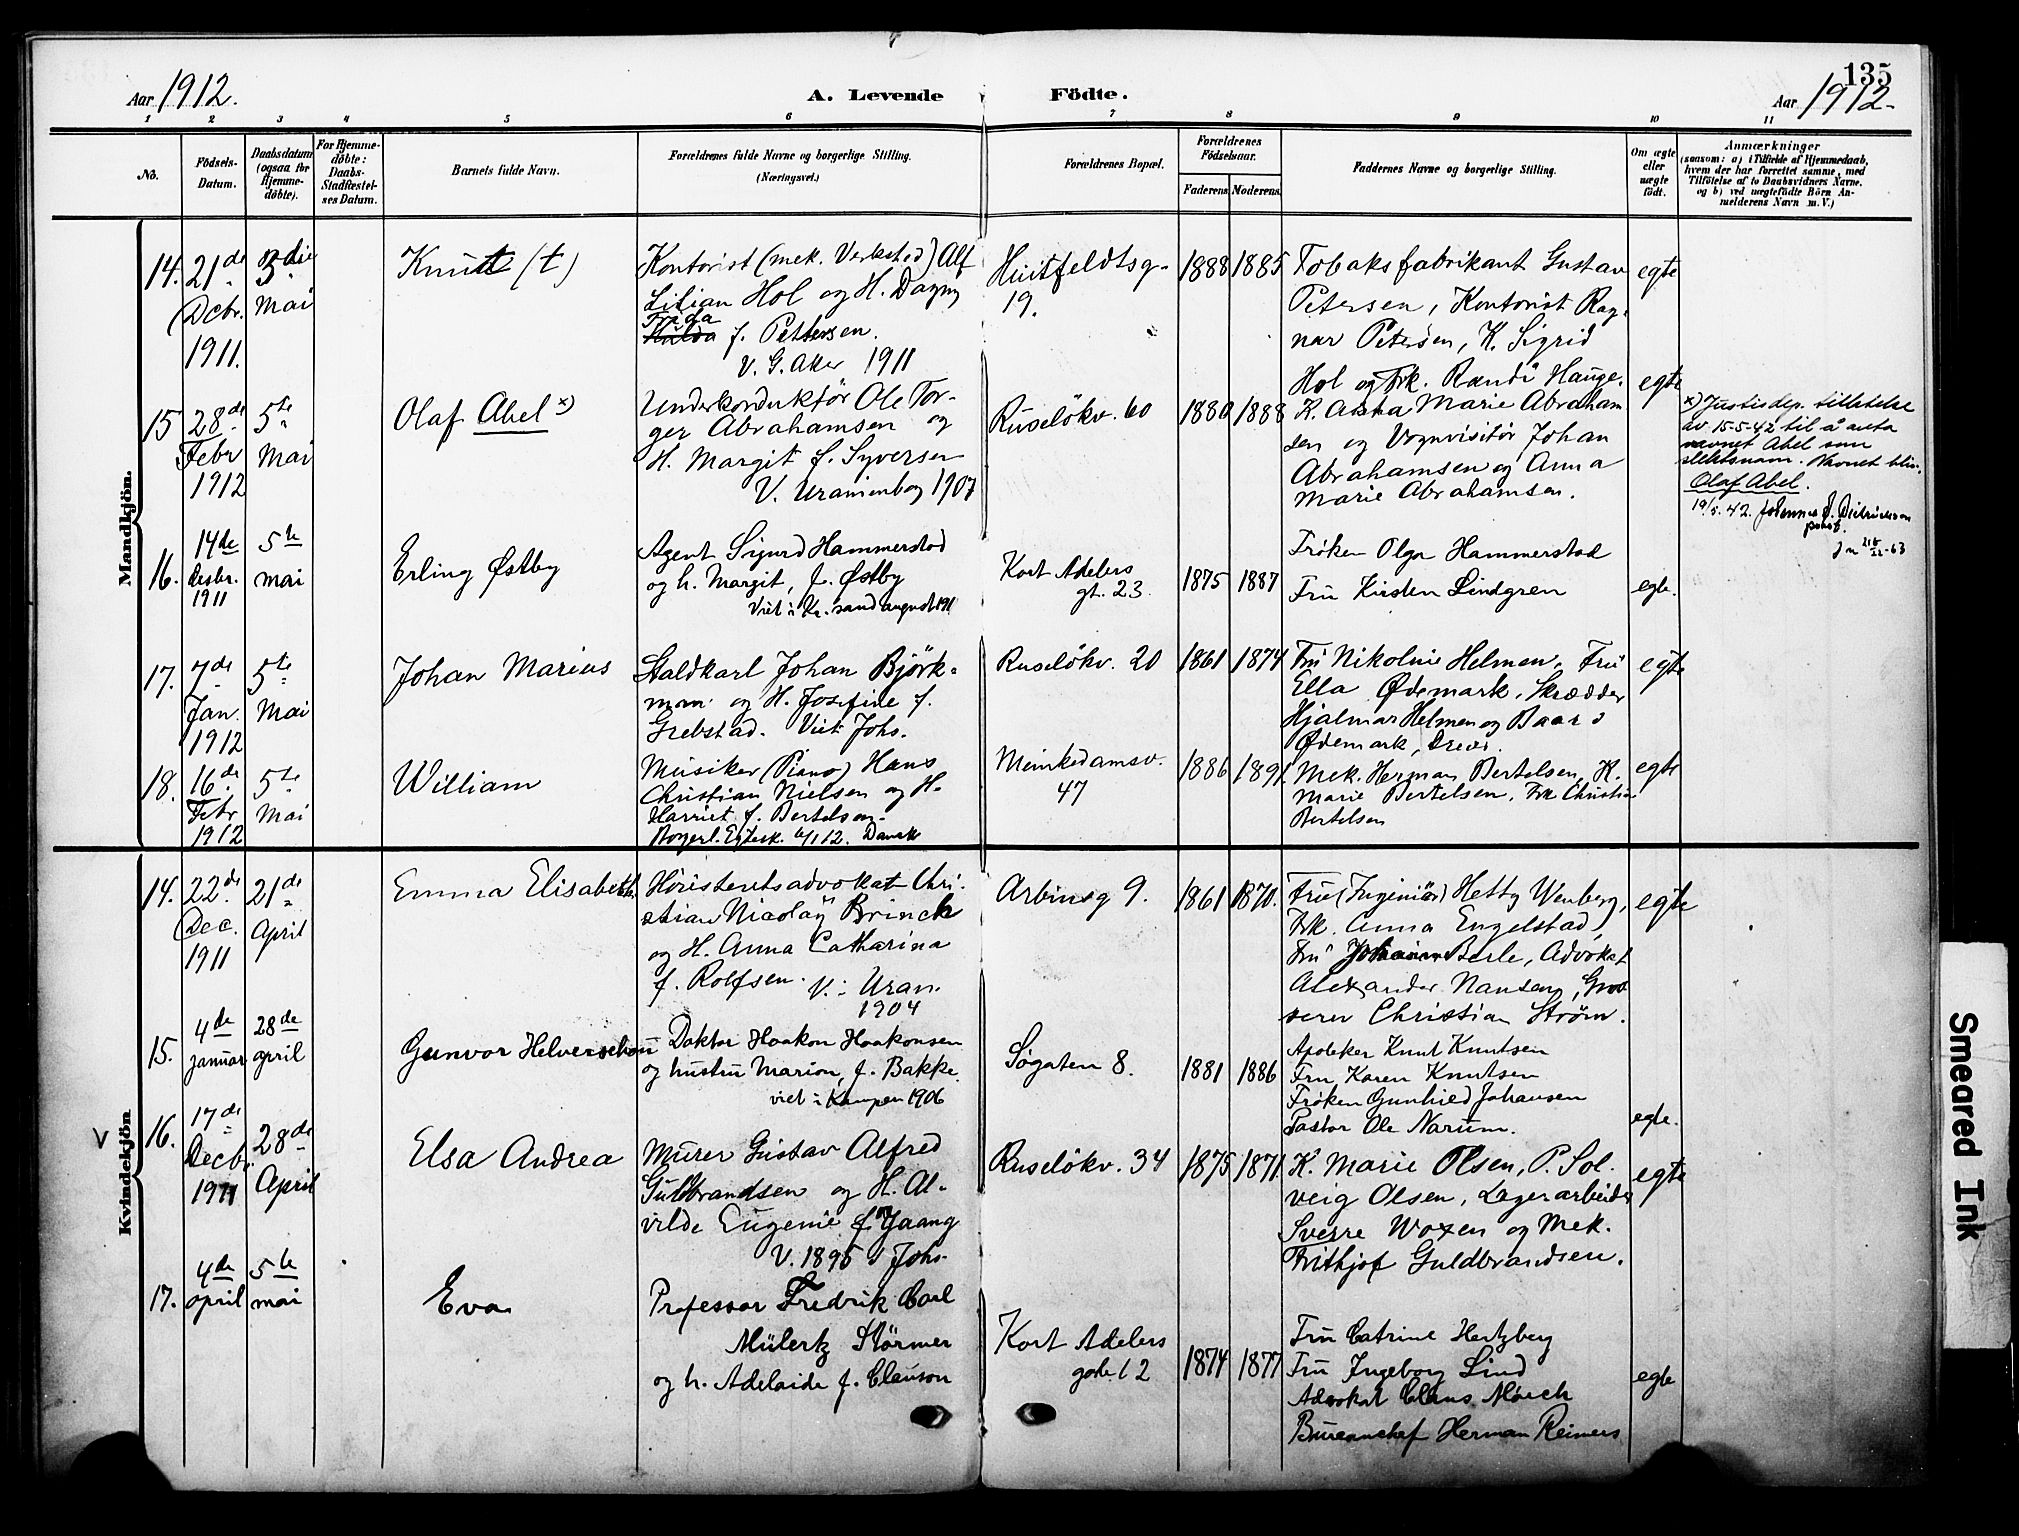 135
Aar 1912.
A. Levende Födte.
Aar 1912.
1 2 3 4 5 6 7 8 9 10 11
No.
Födsels-
Datum.
Daabsdatum
(ogsaa for
Hjemme-
döbte).
For Hjemme-
döbte:
Daabs-
Stadfæstel-
ses Datum.
Barnets fulde Navn.
Forældrenes fulde Navne og borgerlige Stilling.
(Næringsvei.)
Forældrenes Bopæl.
Forældrenes
Födselsaar.
Faderens. Moderens.
Faddernes Navne og borgerlige Stilling.
Om ægte
eller
uægte
födt.
Anmærkninger
(saasom: a) i Tilfælde af Hjemmedaab,
hvem der har forrettet samme, med
Tilföielse af to Daabsvidners Navne,
og b) ved uægtefödte Börn An-
melderens Navn m. V.)
Mandkjön.
14.
21de
Decbr.
1911.
5die
Mai
Knut (t)
Kontorist (mek. Verksted) Alf
Lilian Hol og H. Dagny
Frida
Hulda f. Pettersen.
V. G. Aker 1911
Huitfeldtsg.
19.
1888 1885
Tobaksfabrikant Gustav
Petersen, Kontorist Rag-
nar Petersen, K. Sigrid
Hol og Frk. Randi Hauge.
egte
15
28de
Febr
1912
5te
Mai
Olaf Abel x)
Underkonduktör Ole Tor-
ger Abrahamsen og
H. Margit f. Syversen
V. Uranienborg 1907
Ruselökv. 60
1880 1888
K. Anna Marie Abraham
sen og Vognvisitör Johan
Abrahamsen og Anna
Marie Abrahamsen.
egte
x) Justisdep. tillatelse
av 15-5-42 til å anta
navnet Abel som
slektsnavn. Navnet blir.
Olaf Abel.
19/5.42. Johannes Dietrichson
prost.
16.
14de
Desbr.
1911
5te
mai
Erling Østby
Agent Sigurd Hammerstad
og h. Margit, f. Østby
Viet i Kr.sand august 191
Kort Adelers
gt. 23.
1875 1887
Frøken Olga Hammerstad
Fru Kirsten Lindgren
egte.
17.
7de
Jan.
1912
5te
Mai
Johan Marius
Staldkarl Johan Björk-
man og H. Josefine f.
Grebstad. Viet Johs.
Ruselökv. 20
1861 1874
Fru Nikoline Helmen, Fru
Ella Ødemark, Skrædder
Hjalmar Helmen og Baars
Ødemark, Dreier.
egte
18.
16de
Febr
1912
5te
Mai
William
Musiker (Piano) Hans
Christian Nielsen og H.
Harriet f. Bertelsen.
Borgerl. Egtesk. 6/1 12. Dansk
Munkedamsv.
47
1886 1891.
Mek. Herman Bertelsen, K.
Marie Bertelsen, Frk Christin
Bertelsen
egte
Kvindekjön
14.
22de
Dec.
1911
21de
April
Emma Elisabeth.
Höiesteretsadvokat Chri-
stian Nicolay Brinch
og H. Anna Catharina
f. Rolfsen. V. Uran.
1904
Arbinsg 9.
1861 1870.
Fru (Ingeniör) Hetty Wenberg,
Frk. Anna Engelstad,
Fru Johanne Berle, Advokat
Alexander Nansen, Gros
serer Christian Strøm.
egte
15.
4de
januar
28de
april
Gunvor Helverschou
Doktor Haakon Haakonsen
og hustru Marion, f. Bakke
viet i Kampen 1906
Søgaten 8.
1881 1886
Apoteker Knut Knutsen
Fru Karen Knutsen
Frøken Gunhild Johansen
Pastor Ole Narum.
egte.
V
16.
17de
Decbr.
1911
28de
April
Elsa Andrea
Murer Gustav Alfred
Guldbrandsen og H. Al-
vilde Eugenie f. Gaang
V. 1895 i Johs.
Ruselökv. 34
1875 1871.
K. Marie Olsen, P. Sol-
veig Olsen, Lagerarbeider
Sverre Woxen og Mek.
Frithjof Guldbrandsen.
egte
17.
4de
april
5te
mai
Eva
Professor Fredrik Carl
Mülertz Størmer
og h. Adelaide f. Clauson
Kort Adelers
gade 12
1874 1877
Fru Catrine Hertzberg
Fru Ingeborg Lind
Advokat Claus Mørch
Bureauchef Herman Reimers
egte
Smeared Ink